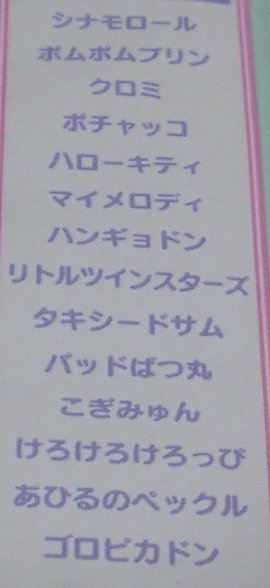 シナモロール
ポムポムプリン
クロミ
ポチャッコ
ハローキティ
マイメロディ
ハンギョドン
リトルツインスターズ
タキシードサム
バッドばつ丸
こぎみゅん
けろけろけろっぴ
あひるのペックル
ゴロピカドン